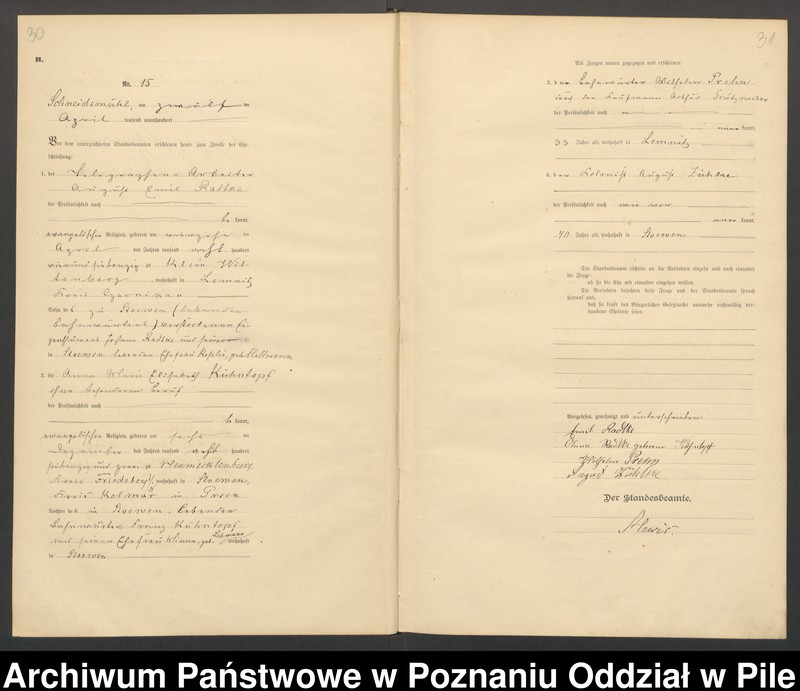 30
B.
Nr. 15
Schneidemühl, am zwölf ten
April tausend neunhundert
Vor dem unterzeichneten Standesbeamten erschienen heute zum Zwecke der Ehe-
schließung:
1. der Telegraphen Arbeiter
August Emil Radtke
der Persönlichkeit nach
be kannt,
evangelischer Religion, geboren am vierzehn ten
April des Jahres tausend acht hundert
vierundsiebenzig zu Klein Wit-
tenberg, wohnhaft in Lemnitz
Kreis Czarnikau
Sohn des zu Stoewen
verstorbenen Ei-
genthümers Johann Radtke und seiner
in Stoewen lebenden Ehefrau geb.
2. die Anna Marie Elisabeth Kühntopf
ohne besonderen Beruf
der Persönlichkeit nach
be kannt,
evangelischer Religion, geboren am sechs ten
Dezember des Jahres tausend acht hundert
siebenzig und zu Neumecklenburg
Kreis Friedeberg, wohnhaft in Stoewen,
Kreis Kolmar in Posen
Tochter des in Stoewen lebenden
Bahnwärters Franz Kühntopf
und seiner Ehefrau Minna, geb. Lehmann wohnhaft
in Stoewen
31
Als Zeugen waren zugezogen und erschienen:
3. der Bahnwärter Wilhelm Prehn
durch den Kaufmann Arthur
der Persönlichkeit nach
kannt,
33 Jahre alt, wohnhaft in Lemnitz
4. der Kolonist August
der Persönlichkeit nach wie vor
kannt,
40 Jahre alt, wohnhaft in Stoewen
Der Standesbeamte richtete an die Verlobten einzeln und nach einander
die Frage:
ob sie die Ehe mit einander eingehen wollen.
Die Verlobten bejahten diese Frage und der Standesbeamte sprach
hierauf aus,
daß sie kraft des Bürgerlichen Gesetzbuchs nunmehr rechtmäßig ver-
bundene Eheleute seien.
Vorgelesen, genehmigt und unterschrieben
Emil Radtke
Anna Radtke geborene Kühntopf
Wilhelm Prehn
August
Der Standesbeamte.
Archiwum Państwowe w Poznaniu Oddział w Pile